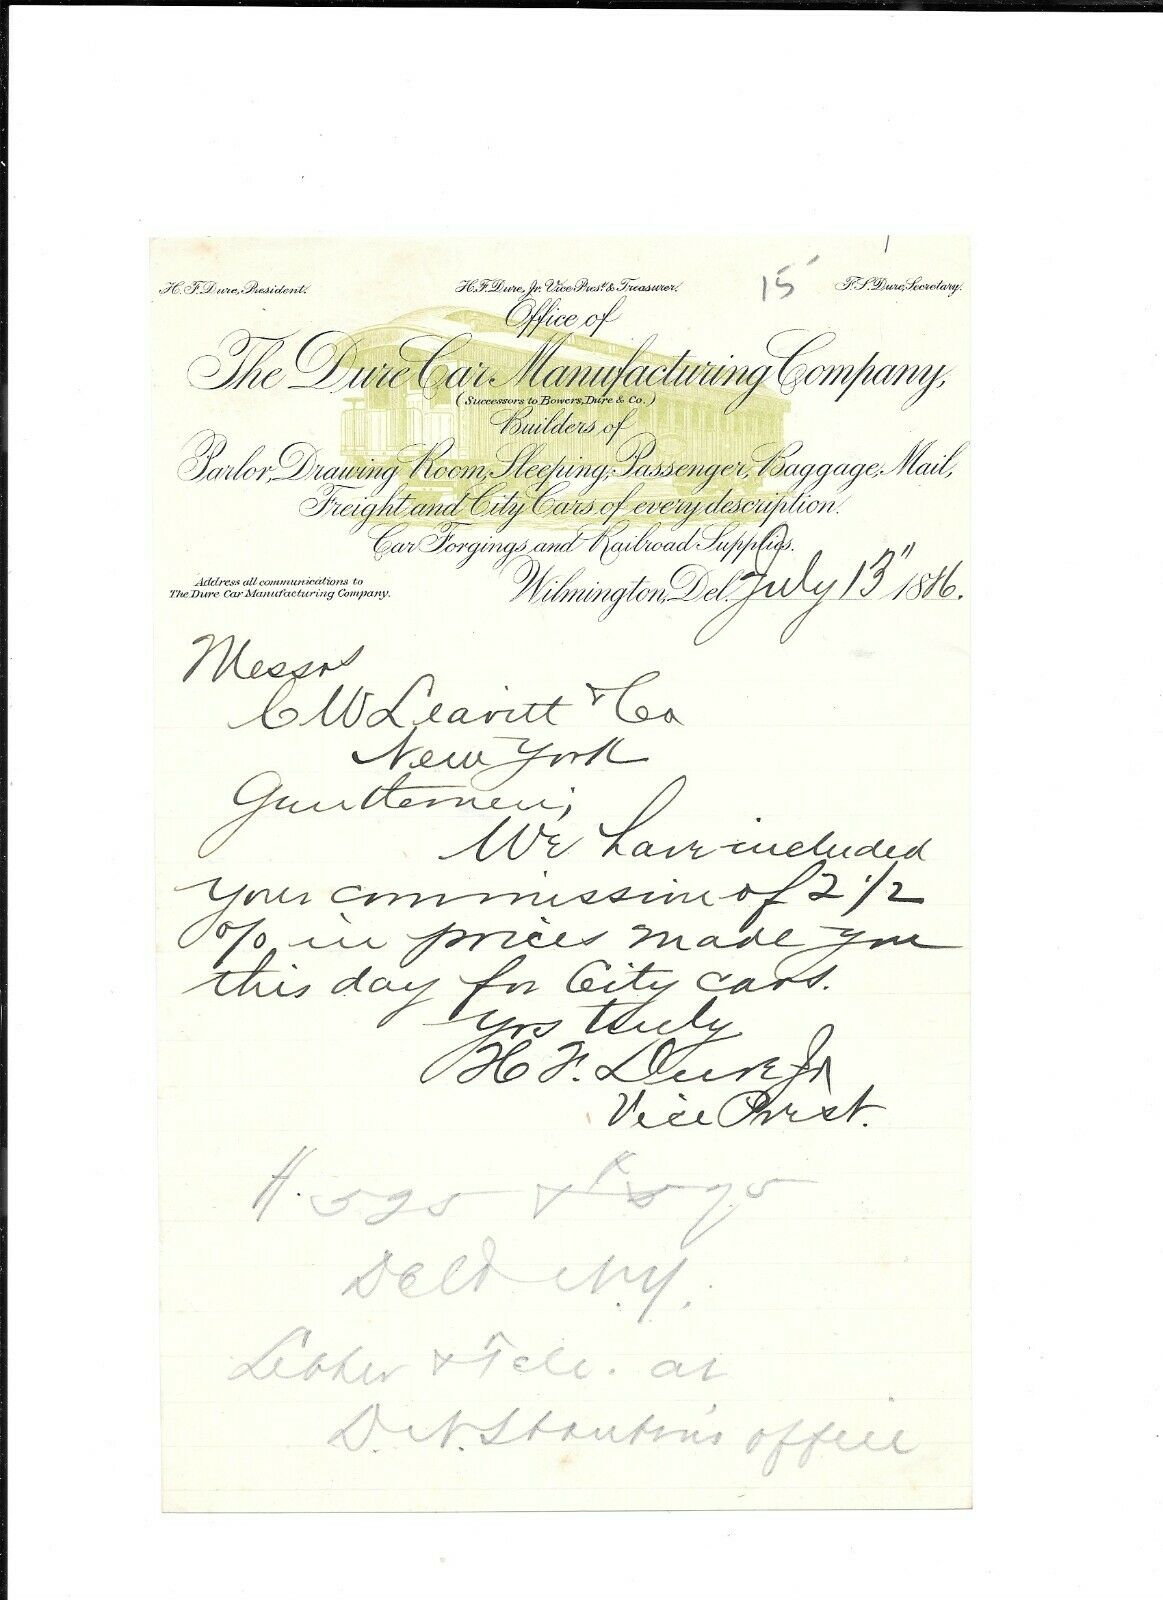 15
H. F. Dure, President.
H. F. Dure, Jr. Vice Prest. & Treasurer.
F. S. Dure, Secretary.
Office of
The Dure Car Manufacturing Company,
(Successors to Bowers, Dure & Co.)
Builders of
Parlor, Drawing Room, Sleeping, Passenger, Baggage, Mail,
Freight and City Cars of every description.
Car Forgings and Railroad Supplies.
Address all communications to
The Dure Car Manufacturing Company.
Wilmington, Del. July 13" 1886.
Messrs
C W Leavitt & Co
New York
Gentlemen;
We have included
your commission of 2 1/2
% in prices made you
this day for City cars.
Yrs truly
H F. Dure Jr
Vice Prest.
H. 525 &
Deld N.Y.
Letter & Tele. at
D. N. office